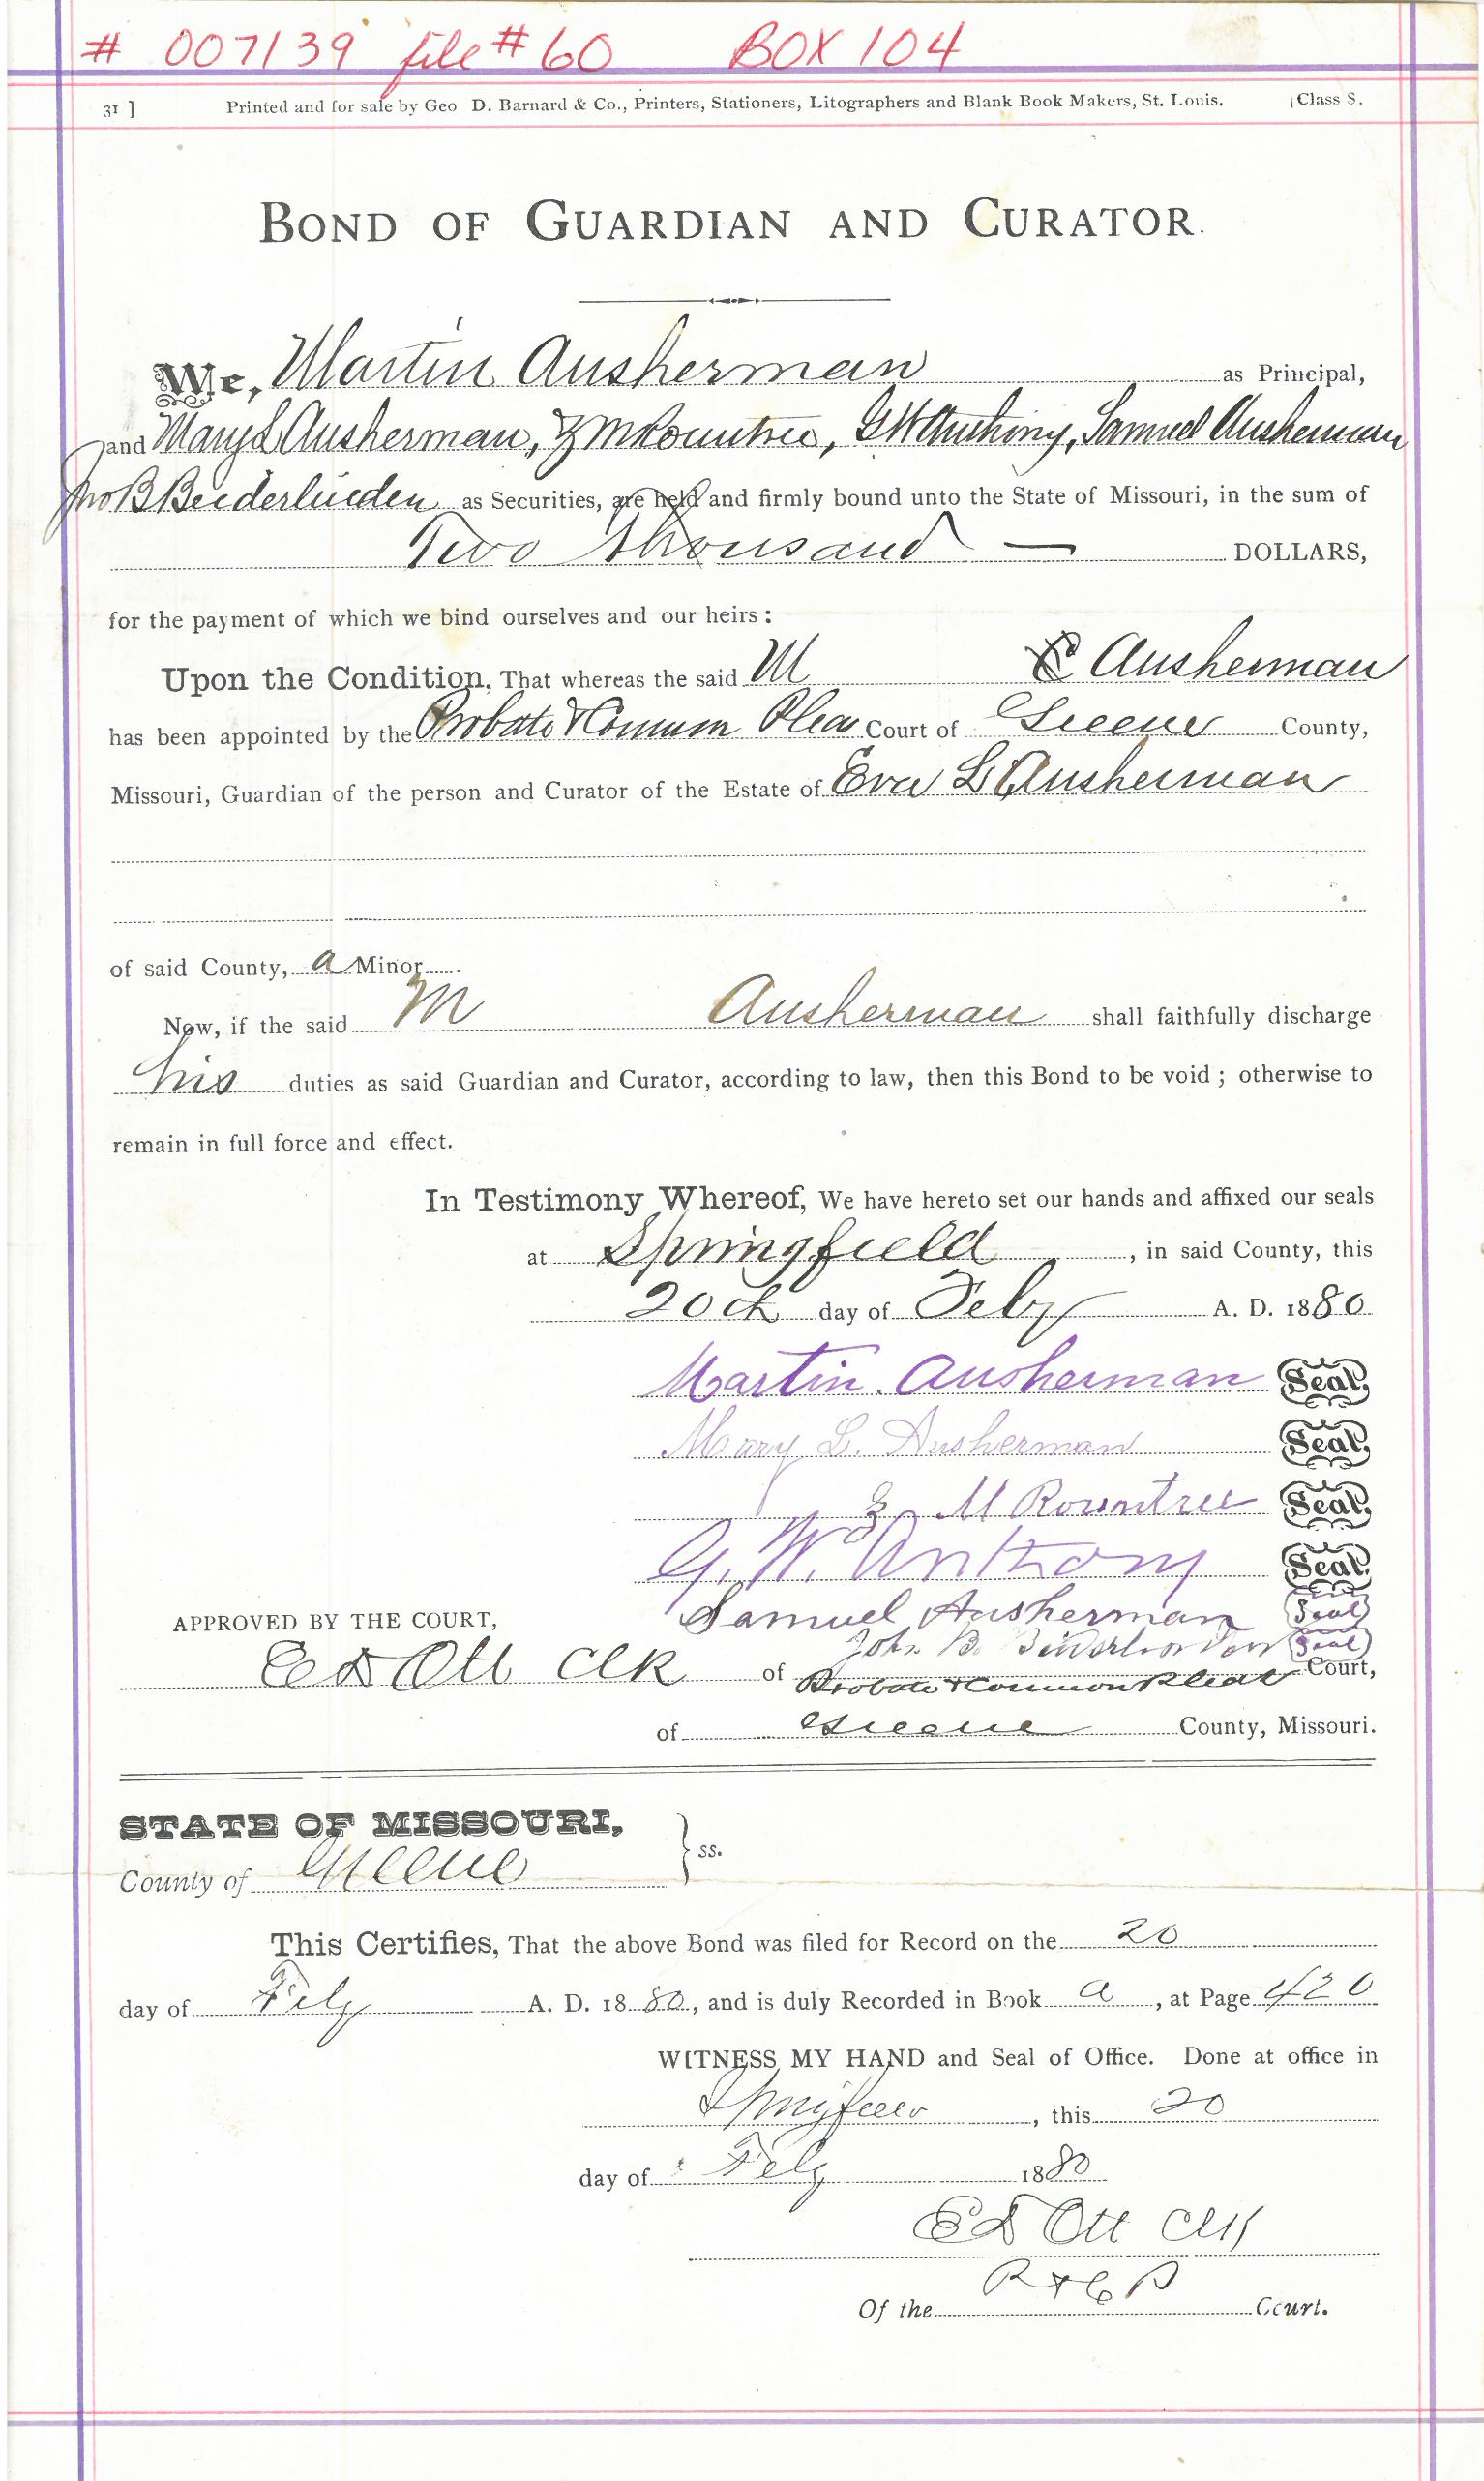 # 007139 file # 60 BOX 104
31 ] Printed and for sale by Geo D. Barnard & Co., Printers, Stationers, Litographers and Blank Book Makers, St. Louis. [Class S.
BOND OF GUARDIAN AND CURATOR.
We, Martin Ausherman as Principal,
and Mary L Ausherman, Z M Rountree, G W Anthony, Samuel Ausherman
Jno B Beiderlinden as Securities, are held and firmly bound unto the State of Missouri, in the sum of
Two thousand — DOLLARS,
for the payment of which we bind ourselves and our heirs :
Upon the Condition, That whereas the said M Ausherman
has been appointed by the Probate & Common Pleas Court of Greene County,
Missouri, Guardian of the person and Curator of the Estate of Eva L Ausherman
of said County, a Minor .
Now, if the said M Ausherman shall faithfully discharge
his duties as said Guardian and Curator, according to law, then this Bond to be void ; otherwise to
remain in full force and effect.
In Testimony Whereof, We have hereto set our hands and affixed our seals
at Springfield , in said County, this
20th day of Feby A. D. 1880
Martin Ausherman Seal.
Mary L. Ausherman Seal.
Z M Rountree Seal.
G. W. Anthony Seal.
Samuel Ausherman Seal
APPROVED BY THE COURT,
John B. Seal
E D Ott Clk of Probate & Common Pleas Court,
of Greene County, Missouri.
STATE OF MISSOURI,
County of Greene } ss.
This Certifies, That the above Bond was filed for Record on the 20
day of Feby A. D. 1880, and is duly Recorded in Book A , at Page 420
WITNESS MY HAND and Seal of Office. Done at office in
Springfield , this 20
day of Feby 1880
E D Ott Clk
Of the P & C P Court.